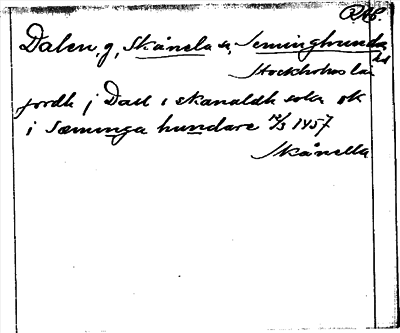 RAB.
Dalen, g, Skånela sn, Seminghundra hd
Stockholms län
jordh j Dall i skanaldh sokn ok
i Sæminga hundare 12/3 1457
Skånella